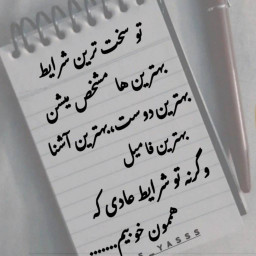 تو سخت ترین شرایط
بهترین ها مشخص میشن
بهترین دوست،،بهترین آشنا
بهترین فامیل
وگرنه تو شرایط عادی که
هممون خوبیم.......
YASSS